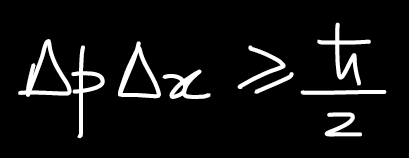 Δp Δx ⩾ ħ/2